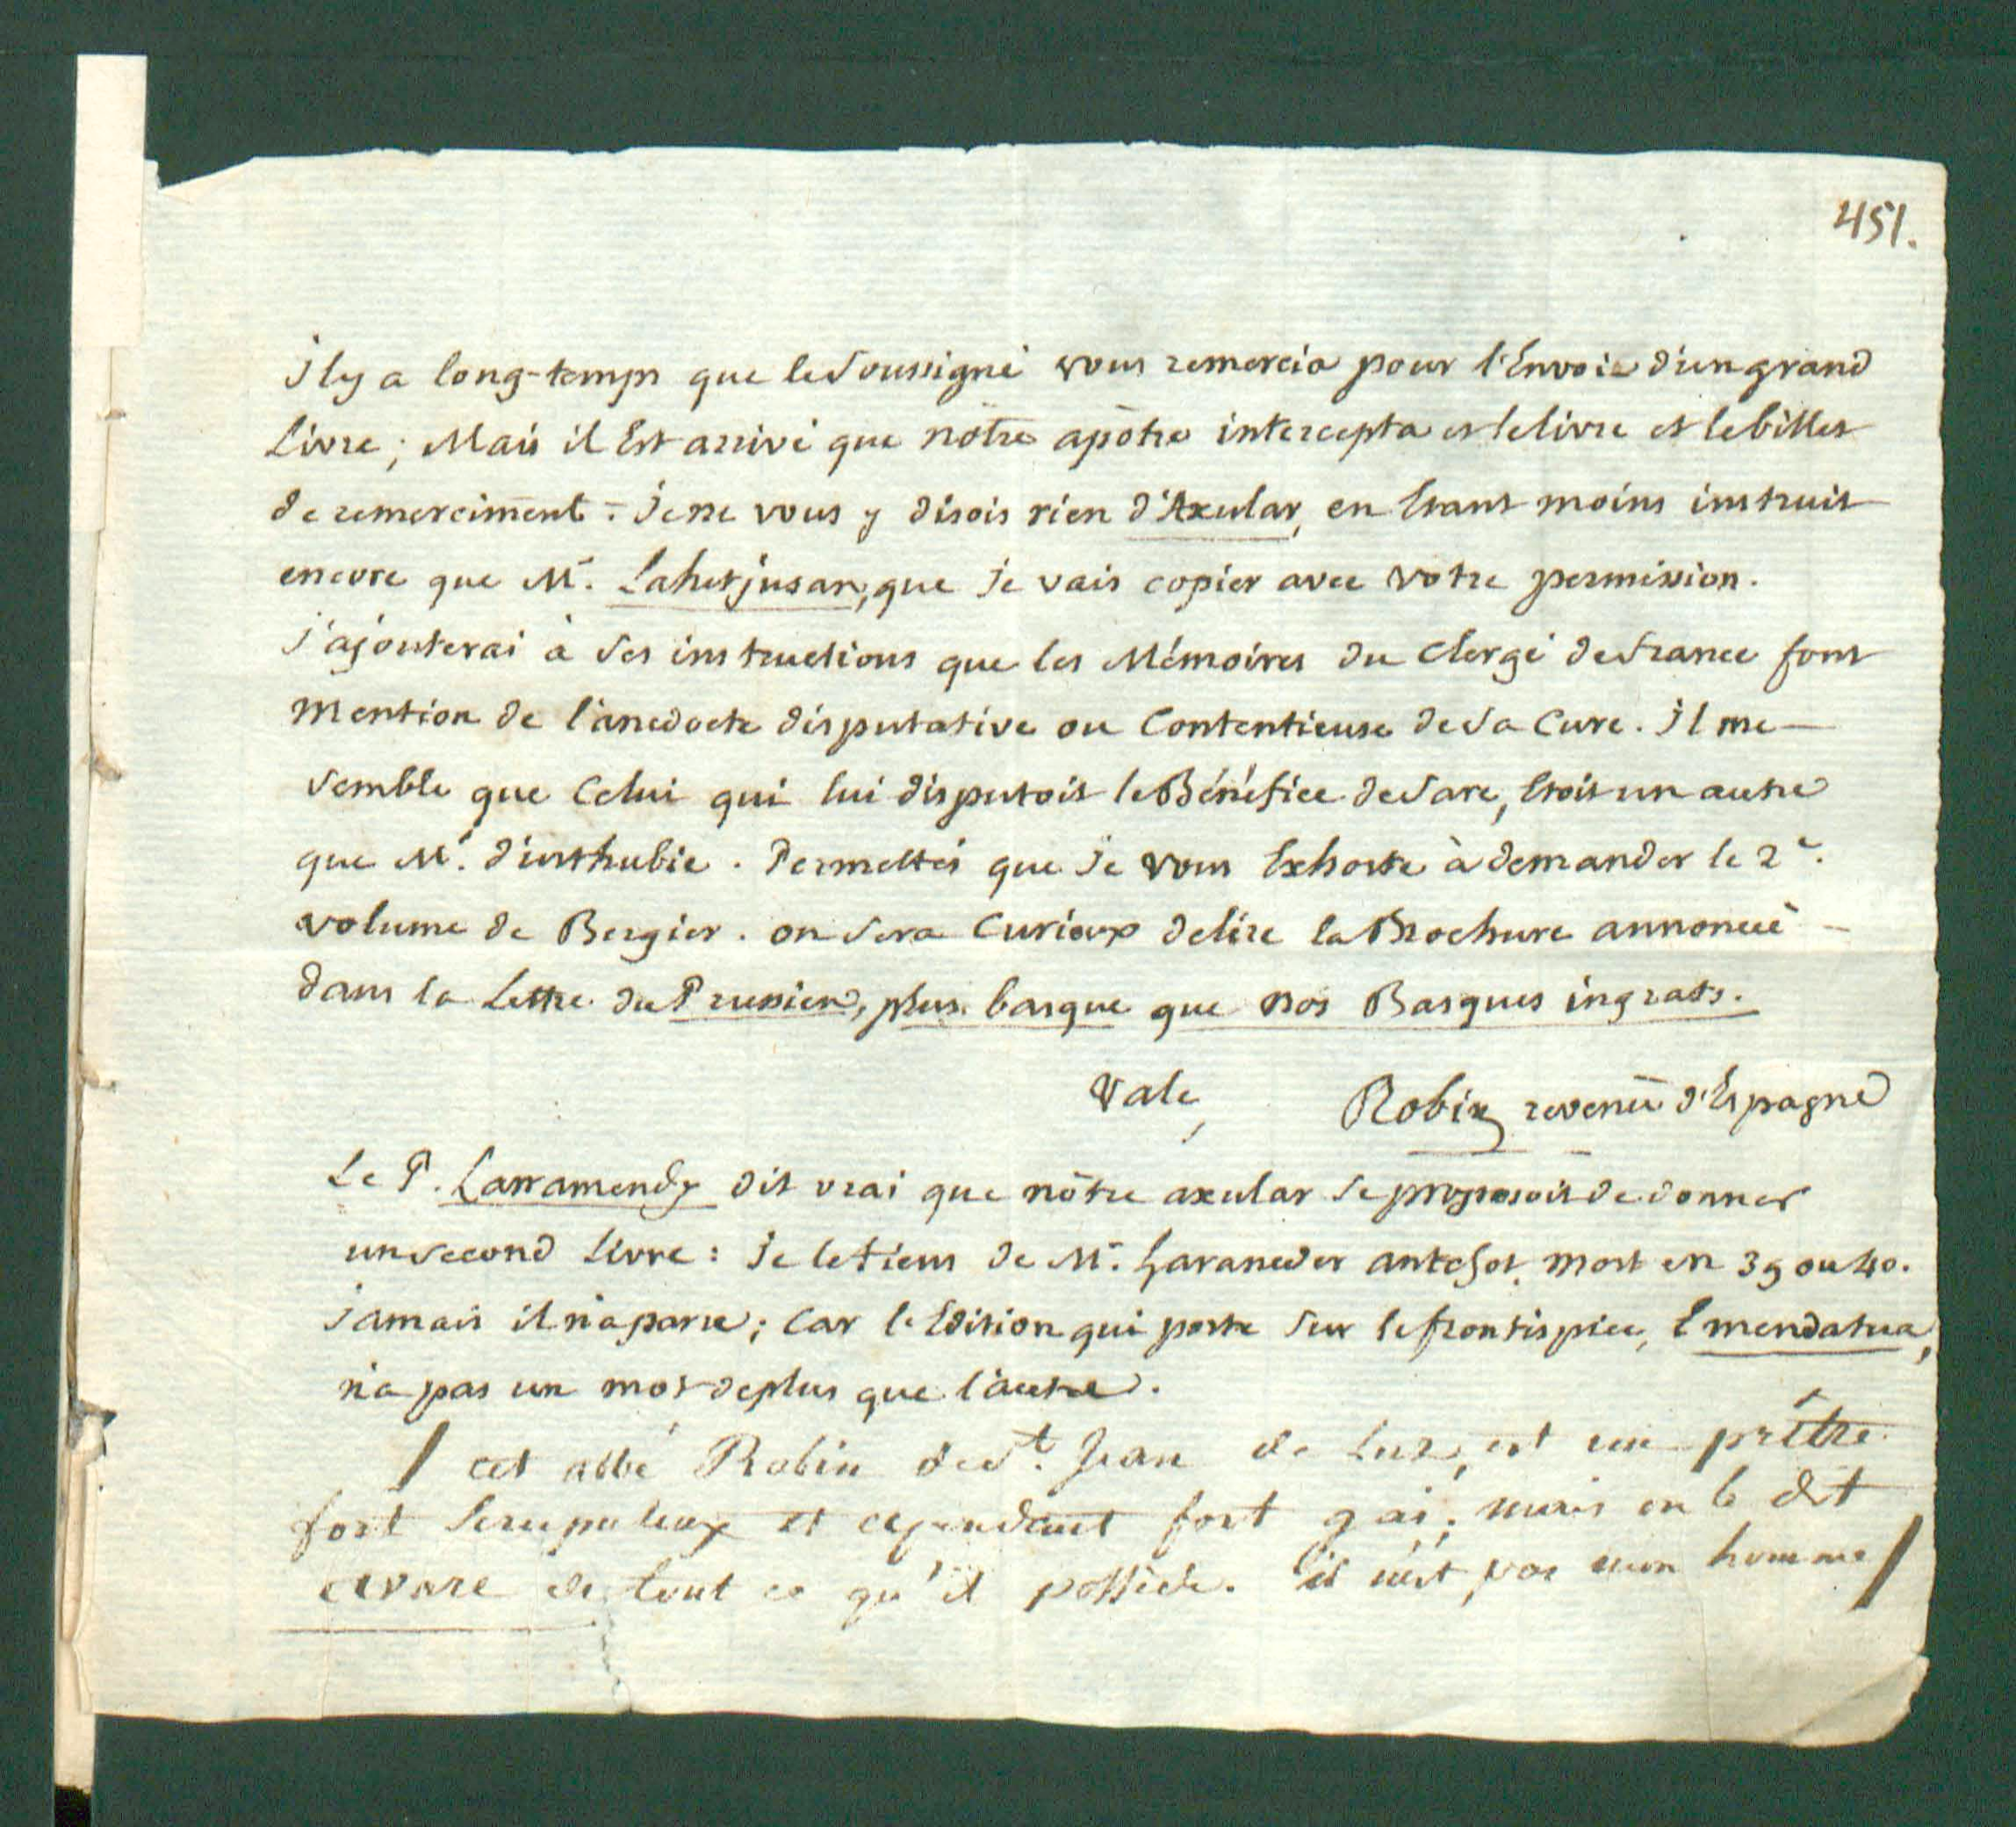 451.
il y a long-temps que le soussigné vous remercia pour l'Envoie d'un grand
Livre; Mais il Est arrivé que nôtre apôtre intercepta et le livre et le billet
de remerciment: Je ne vous y disois rien d'Axular, en Etant moins instruit
encore que Mr. Lahetjusan, que Je vais copier avec votre permission.
J'ajouterai à ses instructions que les Mémoires du Clergé de france font
Mention de l'anecdocte disputative ou Contentieuse de sa Cure. il me
semble que Celui qui lui disputoit le Bénéfice de Sare, Etoit un autre
que Mr. d'urthubie. Permettés que Je vous Exhorte à demander le 2e.
volume de Bergier. on sera Curieux de lire la Brochure annoncée
dans la Lettre du Prussien, plus basque que nos Basques ingrats.
Vale, Robin revenu d'Espagne
Le P. Larramendy dit vrai que nôtre axular se proposoit de donner
un second Livre: Je le tiens de Mr. haraneder mort en 39 ou 40.
Jamais il n'a paru; Car l'Edition qui porte sur le frontispice, Emendatua,
n'a pas un mot de plus que l'autre.
/ cet abbé Robin de St. Jean de Luz, est un prêtre
fort scrupuleux et cependant fort gai; mais on le dit
avare de tout ce qu'il possède. il n'est pas mon homme /